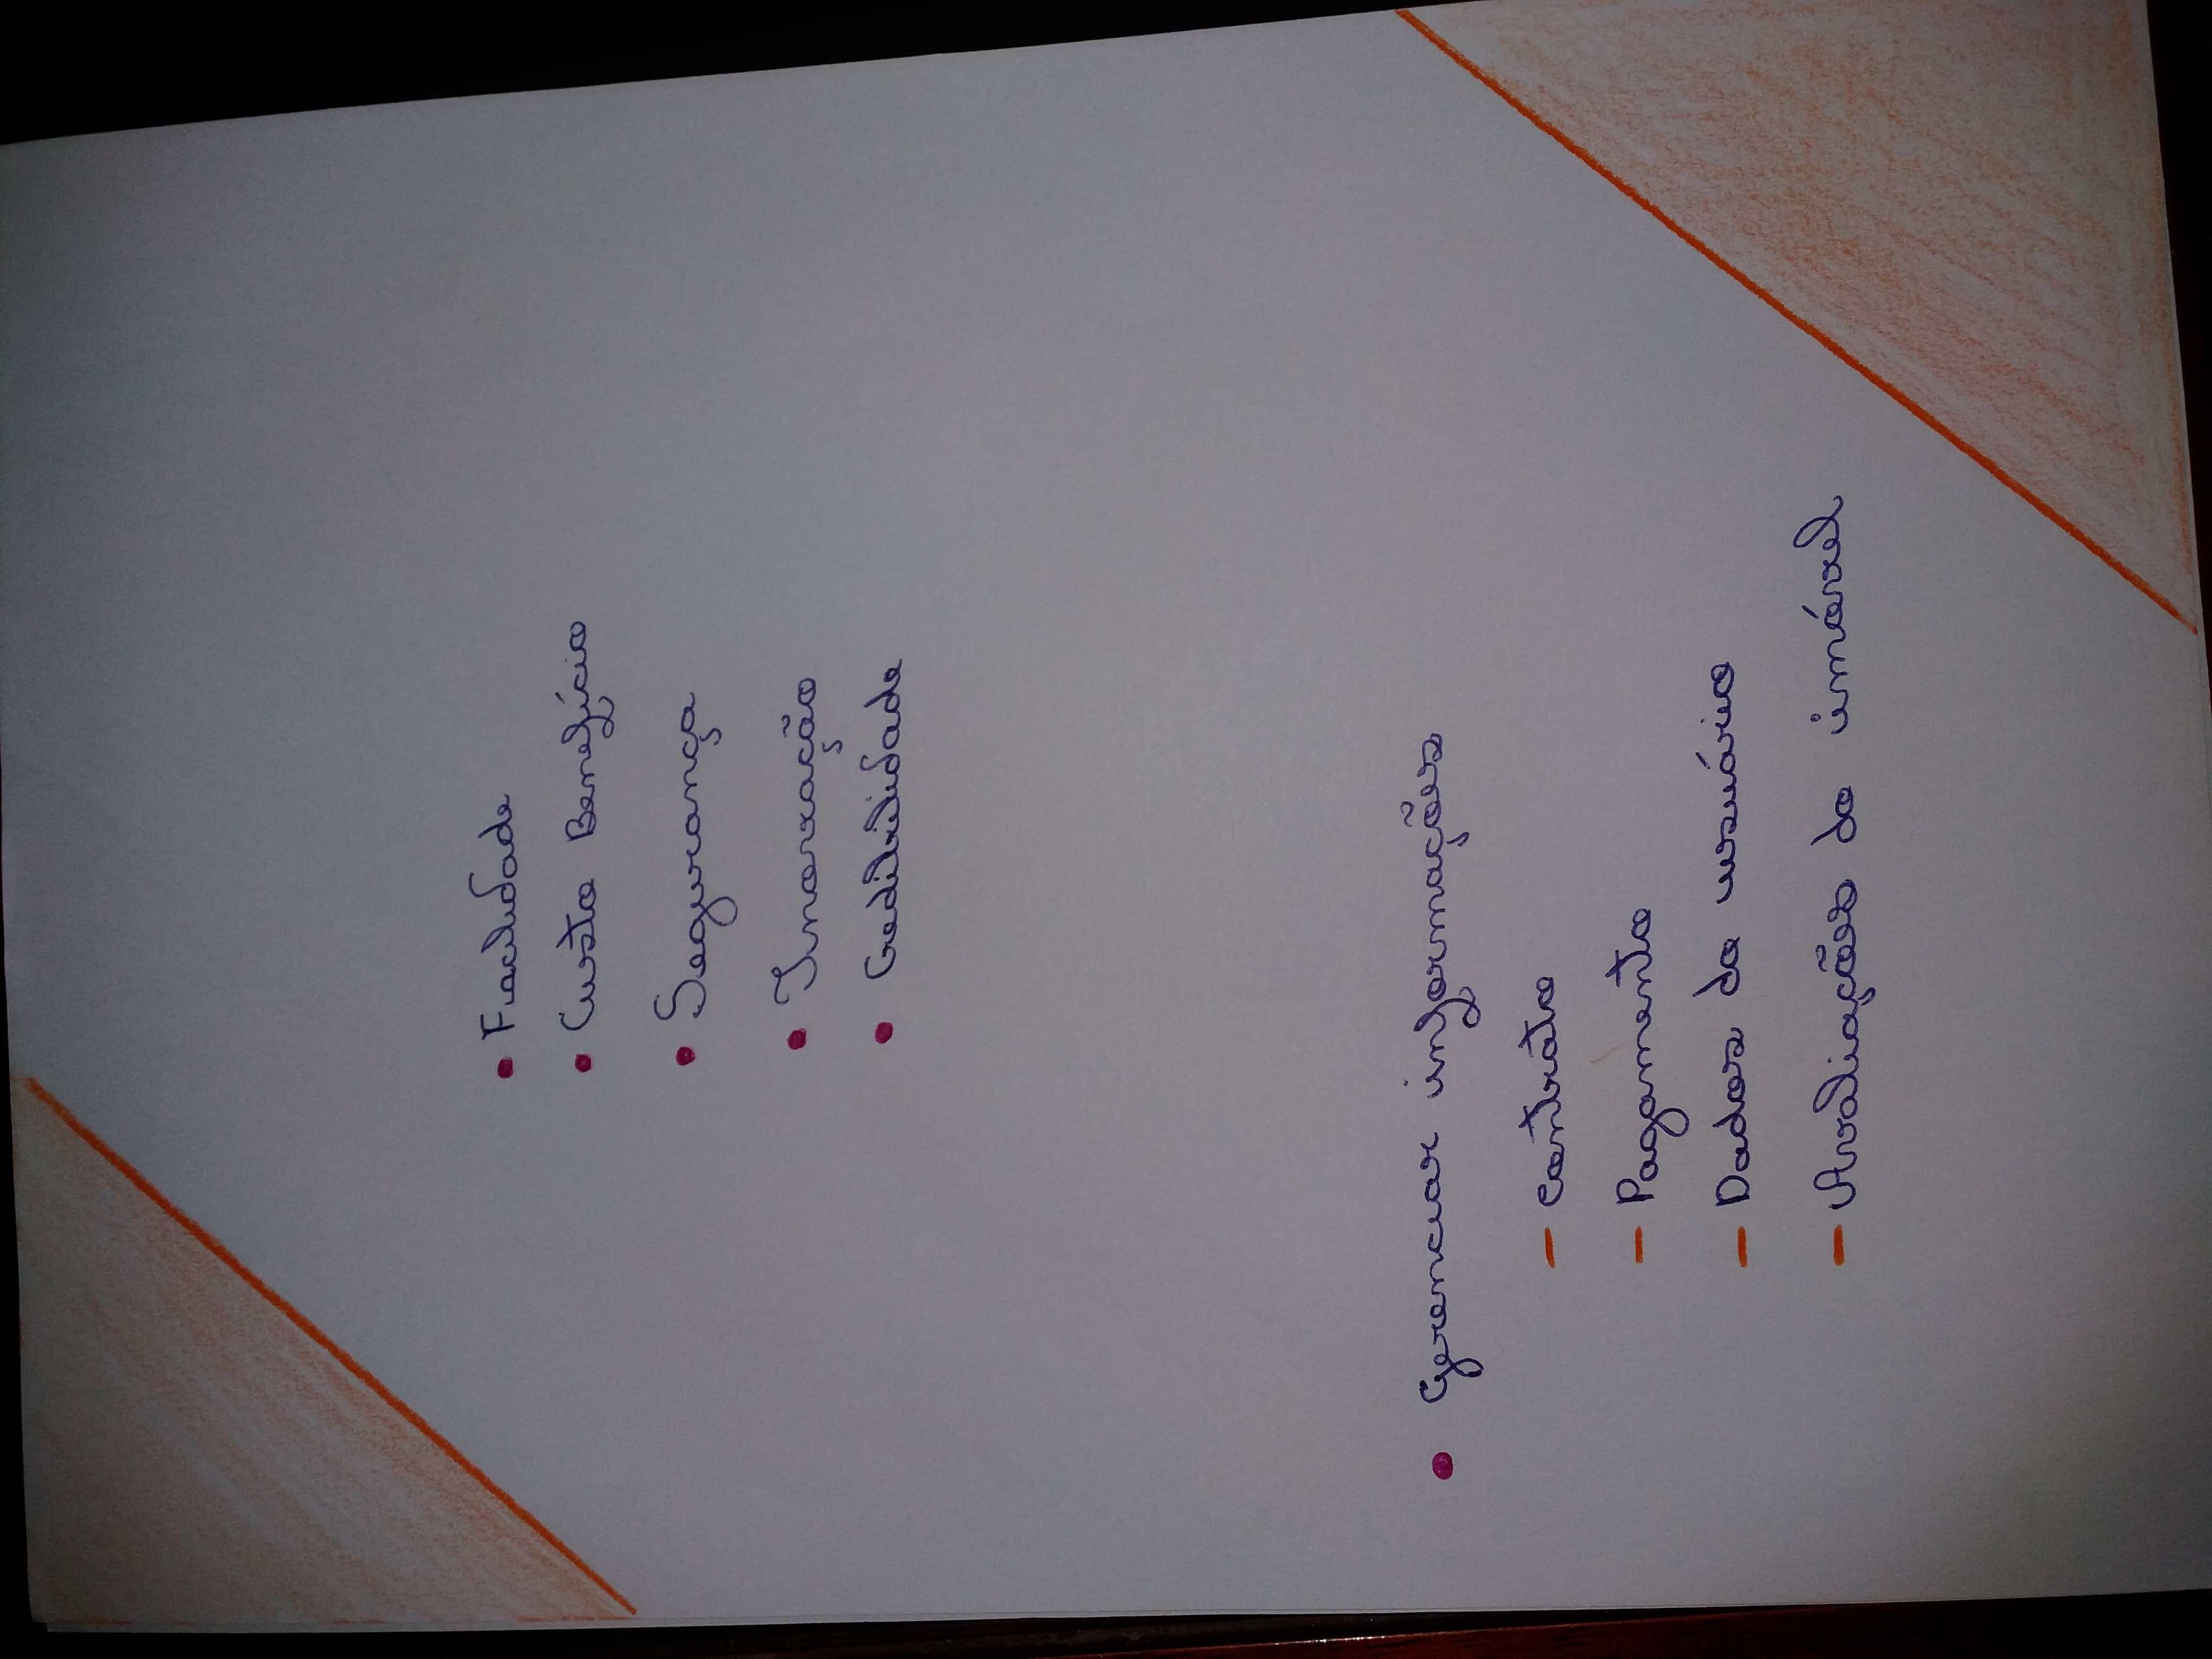 • Facilidade
• Custo Benefício
• Segurança
• Inovação
• Credibilidade
• Gerenciar informações
- contrato
- Pagamento
- Dados do usuário
- Avaliações do imóvel